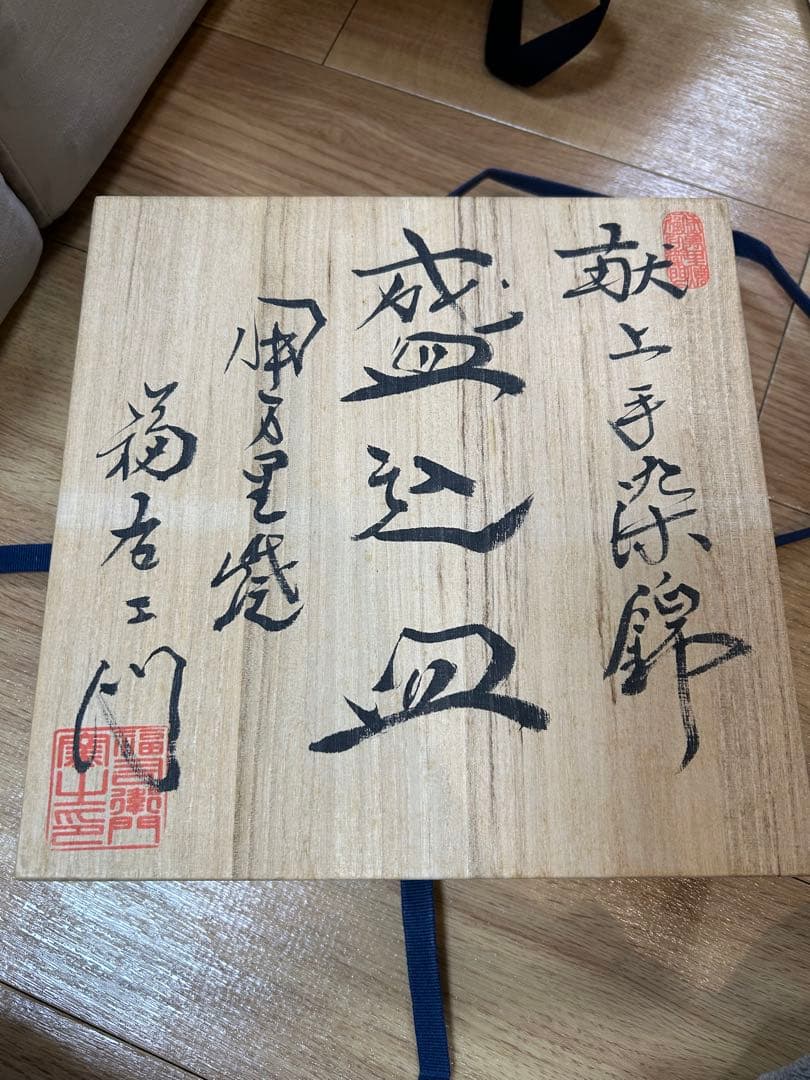 献上手染錦
盛込皿
伊万里焼
福右エ門
福右衛門
窯之印